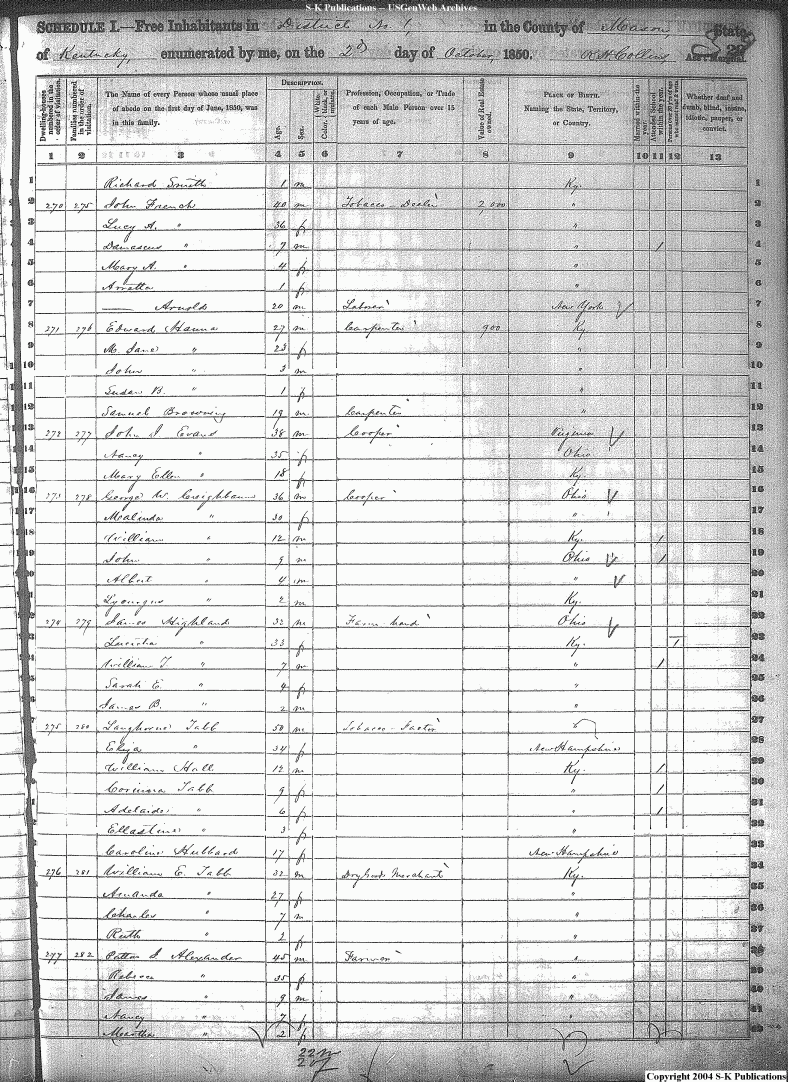 S-K Publications -- USGenWeb Archives
SCHEDULE I.—Free Inhabitants in District No. 1, in the County of Mason State
of Kentucky, enumerated by me, on the 2d day of October, 1850. Ass't Marshal.
Dwelling-houses numbered in the order of visitation. Families numbered in the order of visitation. The Name of every Person whose usual place of abode on the first day of June, 1850, was in this family. DESCRIPTION. Age. Sex. White, Color, black, or mulatto. Profession, Occupation, or Trade of each Male Person over 15 years of age. Value of Real Estate owned. PLACE OF BIRTH. Naming the State, Territory, or Country. Married within the year. Attended School within the year. Whether deaf and dumb, blind, insane, idiotic, pauper, or convict.
1 2 3 4 5 6 7 8 9 10 11 12 13
1 Richard Smith 1 m Ky. 1
2 270 275 John French 40 m Tobacco-Dealer 2,000 " 2
3 Lucy A. " 36 f " 3
4 Damascus " 7 m " 1 4
5 Mary A. " 4 f " 5
6 1 f " 6
7 —— Arnold 20 m Laborer New York 7
8 271 276 Edward Hanna 27 m Carpenter 900 Ky 8
9 M. Jane " 23 f " 9
10 John " 3 m " 10
11 Susan B. " 1 f " 11
12 Samuel Browning 19 m Carpenter " 12
13 272 277 John I. Evans 38 m Cooper Virginia 13
14 Nancy " 35 f Ohio 14
15 Mary Ellen " 18 f Ky. 15
16 273 278 George W. Creighbaum 36 m Cooper Ohio 16
17 Mealinda " 30 f " 17
18 William " 12 m Ky. 1 18
19 John " 9 m Ohio 1 19
20 Albert " 4 m " 20
21 Lycurgus " 2 m Ky. 21
22 274 279 James Highland 32 m Farm-hand Ohio 22
23 Lucinda " 33 f Ky. 1 23
24 William T. " 7 m " 1 24
25 Sarah E. " 4 f " 25
26 James B. " 2 m " 26
27 275 280 Langhorne Tabb 50 m Tobacco-Factor " 27
28 Eliza " 34 f New Hampshire 28
29 William Hall 12 m Ky. 1 29
30 Corinna Tabb 9 f " 1 30
31 Adelaide " 6 f " 1 31
32 Ellastine " 3 f " 32
33 Caroline Hubbard 17 f New Hampshire 33
34 276 281 William E. Tabb 32 m Dry Goods Merchant Ky. 34
35 Amanda " 27 f " 35
36 Charles " 7 m " 36
37 Ruth " 2 f " 37
38 277 282 Patton I. Alexander 45 m Farmer " 38
39 Rebecca " 35 f " 39
40 James " 9 m " 40
41 Nancy " 7 f " 41
42 Martha " 2 f " 42
22m
20f
Copyright 2004 S-K Publications